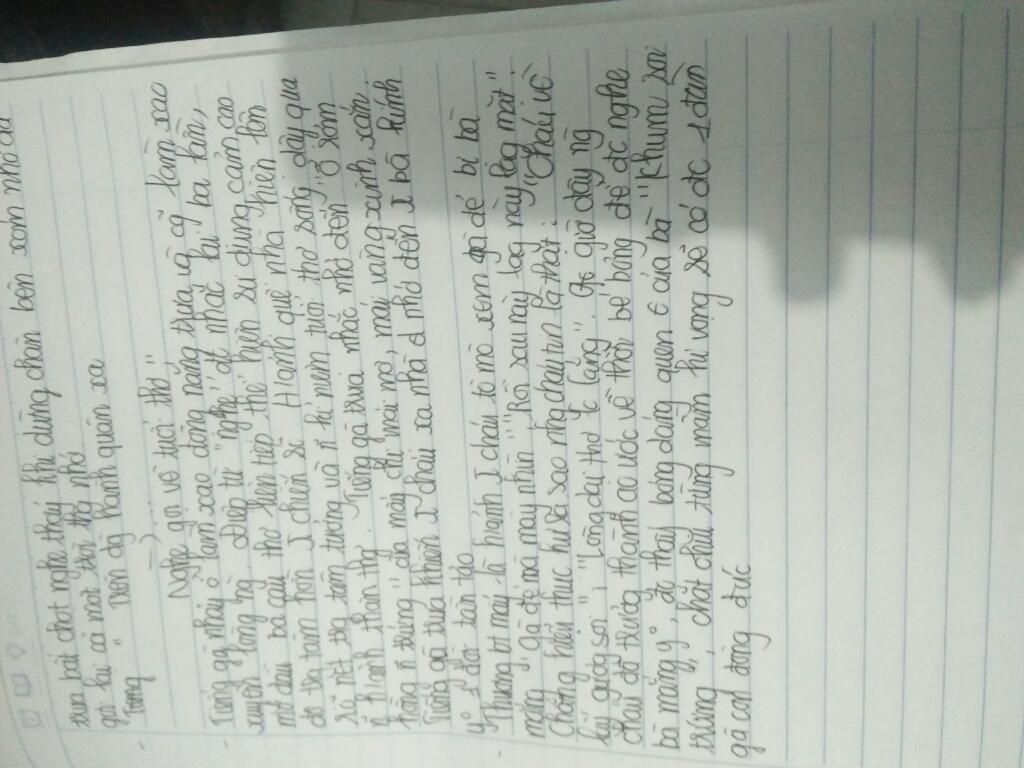 trưa bài chợt nghe thấy khi dừng chân bên xóm nhỏ đã
gợi lại cả một thời thơ nhỏ
- "Trong " Trên đg hành quân xa
→)
Nghe gọi về tuổi thơ"
- Tiếng gà nhảy ổ làm xao động nắng trưa và cg làm xao
xuyến lòng ng. Điệp từ "nghe" đc nhắc lại 3 lần,
mở đầu 3 câu thơ liên tiếp thể hiện sự dụng cảm cao
độ trg tâm hồn 1 chiến sĩ. H ảnh quê nhà hiện lên
rõ nét trg tâm tưởng và n~ kỉ niệm tuổi thơ sống dậy qua
n~ h ảnh thân thg. Tiếng gà trưa nhắc nhớ đến "ổ rơm
hồng n~ trứng" của mấy chị mái mơ, mái vàng xinh xắn.
Tiếng gà trưa khiến 1 cháu xa nhà nhớ đến 1 bà kính
yº 1 đời tần tảo
- Thương bt mấy là h ảnh 1 cháu tò mò xem gà đẻ bị bà
mắng "Gà đẻ mà mày nhìn" "Rồi sau này lag này lag mặt".
Chẳng hiểu thực hư ra sao nhg cháu tin là thật: "Cháu về
lấy gương soi" "Lòng dại thơ lo lắng". Gc giờ đây ng
cháu đã trưởng thành ao ước về thời bé bỏng để đc nghe
bà mắng yº, đc thấy bóng dáng quen of của bà "Khum soi
trứng", chắt chiu từng mầm hi vọng sẽ có đc 1 đàn
gà con đông đúc